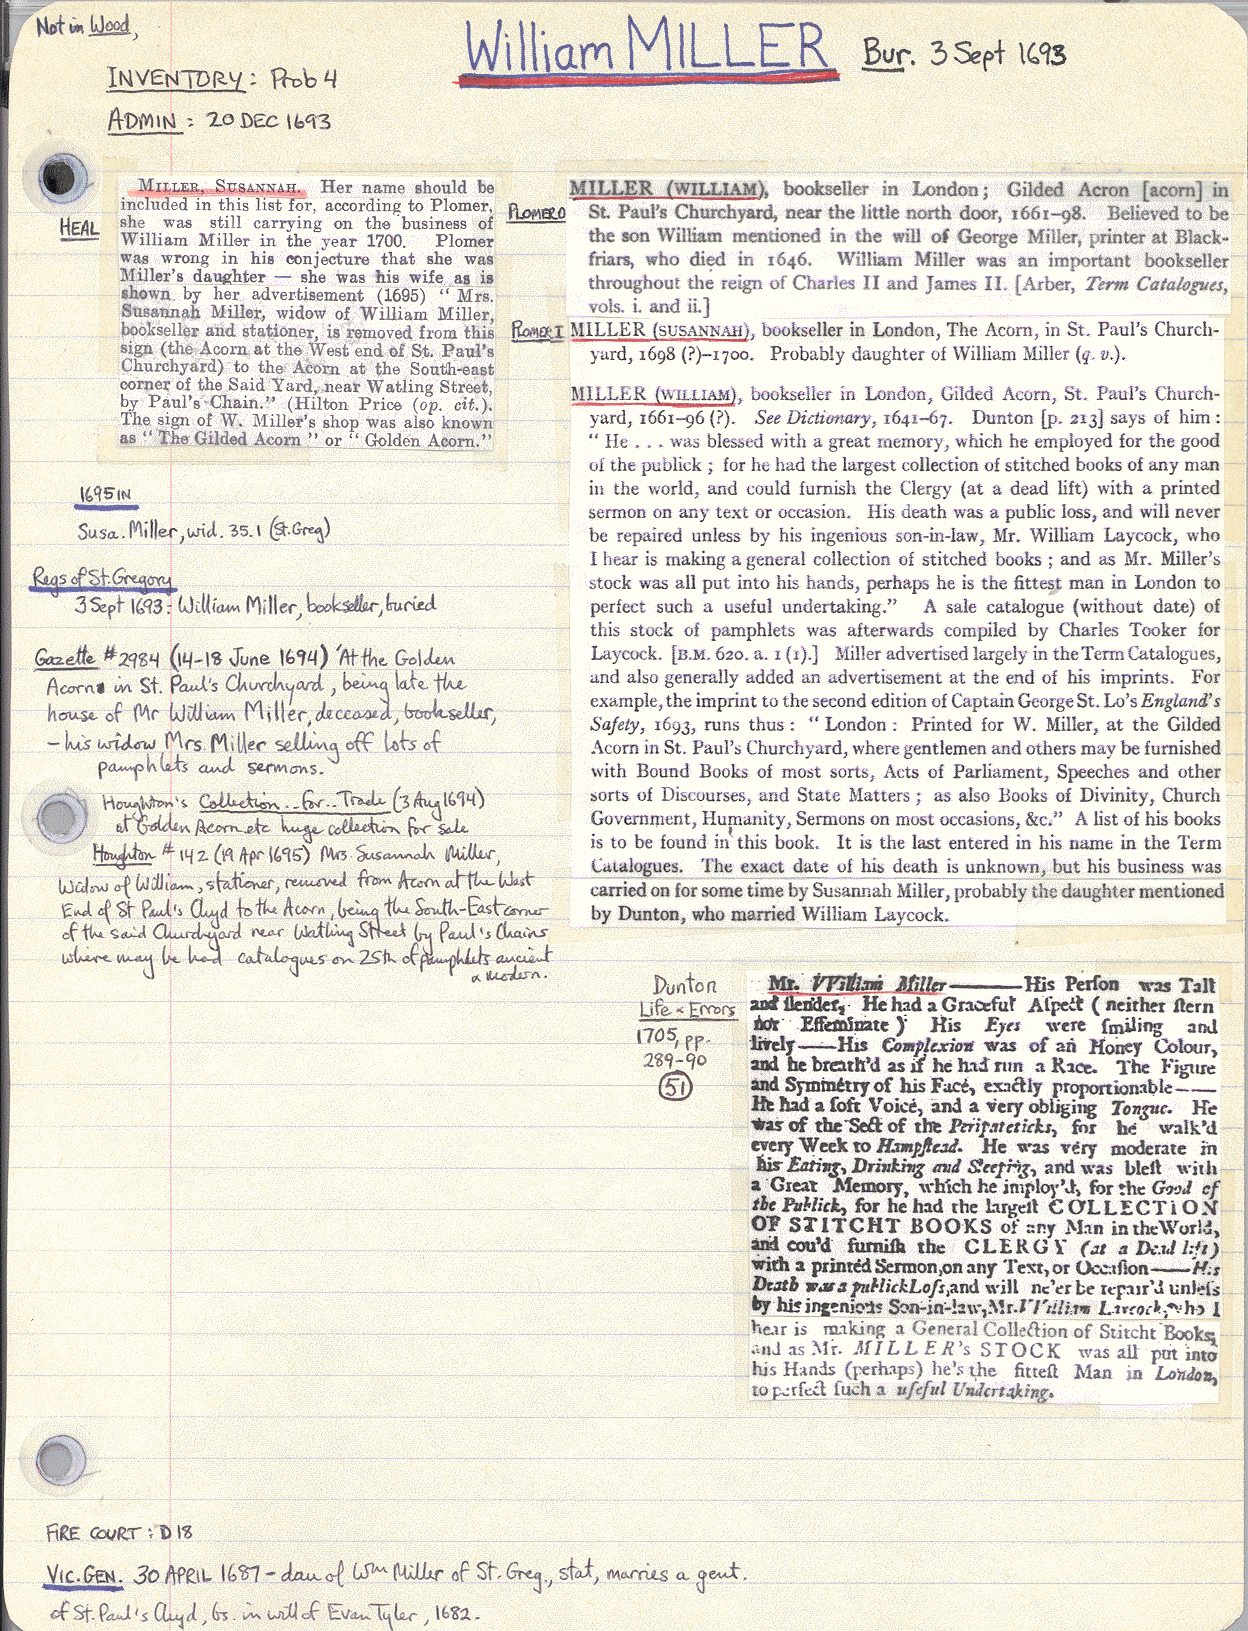 Not in Wood,
William MILLER Bur. 3 Sept 1693
INVENTORY: Prob 4
ADMIN: 20 DEC 1693
HEAL
MILLER, SUSANNAH. Her name should be
included in this list for, according to Plomer,
she was still carrying on the business of
William Miller in the year 1700. Plomer
was wrong in his conjecture that she was
Miller's daughter — she was his wife as is
shown by her advertisement (1695) " Mrs.
Susannah Miller, widow of William Miller,
bookseller and stationer, is removed from this
sign (the Acorn at the West end of St. Paul's
Churchyard) to the Acorn at the South-east
corner of the Said Yard, near Watling Street,
by Paul's Chain." (Hilton Price (op. cit.).
The sign of W. Miller's shop was also known
as " The Gilded Acorn " or " Golden Acorn."
1695 IN
Susa. Miller, wid. 35.1 (St. Greg)
Regs of St. Gregory
3 Sept 1693: William Miller, bookseller, buried
Gazette #2984 (14-18 June 1694) 'At the Golden
Acorn in St. Paul's Churchyard, being late the
house of Mr William Miller, deceased, bookseller,
- his widow Mrs. Miller selling off lots of
pamphlets and sermons.
Houghton's Collection..for..Trade (3 Aug 1694)
at Golden Acorn etc huge collection for sale
Houghton # 142 (19 Apr 1695) Mrs. Susannah Miller,
Widow of William, stationer, removed from Acorn at the West
End of St Paul's Chyd to the Acorn, being the South-East corner
of the said Churchyard near Watling Street by Paul's Chains
where may be had catalogues on 25th of pamphlets ancient
& modern.
PLOMER 0
MILLER (WILLIAM), bookseller in London; Gilded Acron [acorn] in
St. Paul's Churchyard, near the little north door, 1661-98. Believed to be
the son William mentioned in the will of George Miller, printer at Black-
friars, who died in 1646. William Miller was an important bookseller
throughout the reign of Charles II and James II. [Arber, Term Catalogues,
vols. i. and ii.]
PLOMER I
MILLER (SUSANNAH), bookseller in London, The Acorn, in St. Paul's Church-
yard, 1698 (?)-1700. Probably daughter of William Miller (q. v.).
MILLER (WILLIAM), bookseller in London, Gilded Acorn, St. Paul's Church-
yard, 1661-96 (?). See Dictionary, 1641-67. Dunton [p. 213] says of him :
" He . . . was blessed with a great memory, which he employed for the good
of the publick ; for he had the largest collection of stitched books of any man
in the world, and could furnish the Clergy (at a dead lift) with a printed
sermon on any text or occasion. His death was a public loss, and will never
be repaired unless by his ingenious son-in-law, Mr. William Laycock, who
I hear is making a general collection of stitched books ; and as Mr. Miller's
stock was all put into his hands, perhaps he is the fittest man in London to
perfect such a useful undertaking." A sale catalogue (without date) of
this stock of pamphlets was afterwards compiled by Charles Tooker for
Laycock. [B.M. 620. a. 1 (1).] Miller advertised largely in the Term Catalogues,
and also generally added an advertisement at the end of his imprints. For
example, the imprint to the second edition of Captain George St. Lo's England's
Safety, 1693, runs thus : " London : Printed for W. Miller, at the Gilded
Acorn in St. Paul's Churchyard, where gentlemen and others may be furnished
with Bound Books of most sorts, Acts of Parliament, Speeches and other
sorts of Discourses, and State Matters ; as also Books of Divinity, Church
Government, Humanity, Sermons on most occasions, &c." A list of his books
is to be found in this book. It is the last entered in his name in the Term
Catalogues. The exact date of his death is unknown, but his business was
carried on for some time by Susannah Miller, probably the daughter mentioned
by Dunton, who married William Laycock.
Dunton
Life & Errors
1705, pp.
289-90
51
Mr. William Miller——His Perſon was Tall
and ſlender, He had a Graceful Aſpect (neither ſtern
nor Effeminate) His Eyes were ſmiling and
lively—His Complexion was of an Honey Colour,
and he breath'd as if he had run a Race. The Figure
and Symmetry of his Face, exactly proportionable——
He had a ſoft Voice, and a very obliging Tongue. He
was of the Sect of the Peripateticks, for he walk'd
every Week to Hampſtead. He was very moderate in
his Eating, Drinking and Sleeping, and was bleſt with
a Great Memory, which he imploy'd, for the Good of
the Publick, for he had the largeſt COLLECTION
OF STITCHT BOOKS of any Man in the World,
and cou'd furniſh the CLERGY (at a Dead lift)
with a printed Sermon, on any Text, or Occaſion——His
Death was a publick Loſs, and will ne'er be repair'd unleſs
by his ingenious Son-in-law, Mr. William Laycock, who I
hear is making a General Collection of Stitcht Books,
and as Mr. MILLER's STOCK was all put into
his Hands (perhaps) he's the fitteſt Man in London,
to perfect ſuch a uſeful Undertaking.
FIRE COURT: D18
VIC. GEN. 30 APRIL 1687 - dau of Wm Miller of St. Greg., stat, marries a gent.
of St. Paul's Chyd, bs. in will of Evan Tyler, 1682.